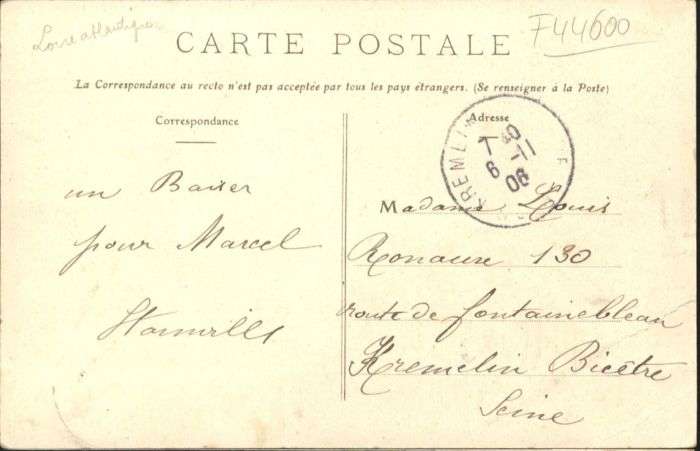 Loire atlantique
F44600
CARTE POSTALE
La Correspondance au recto n'est pas acceptée par tous les pays étrangers. (Se renseigner à la Poste)
Correspondance
un Baiser
pour Marcel
Adresse
KREMLIN
6 - 11
08
Madame Louis
130
route de fontainebleau
Kremelin Bicêtre
Seine